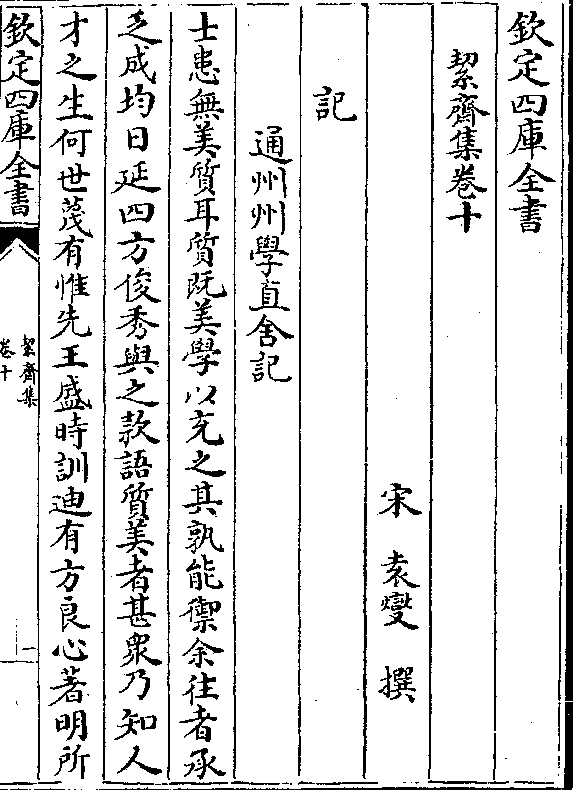 欽定四庫全書
絜齋集卷十
宋 袁燮 撰
記
通州州學直舍記
士患無美質耳質既美學以充之其孰能禦余往者承
乏成均日延四方俊秀與之款語質美者甚衆乃知人
才之生何世蔑有惟先王盛時訓迪有方良心著明所
欽定四庫全書
絜齋集
卷十
一